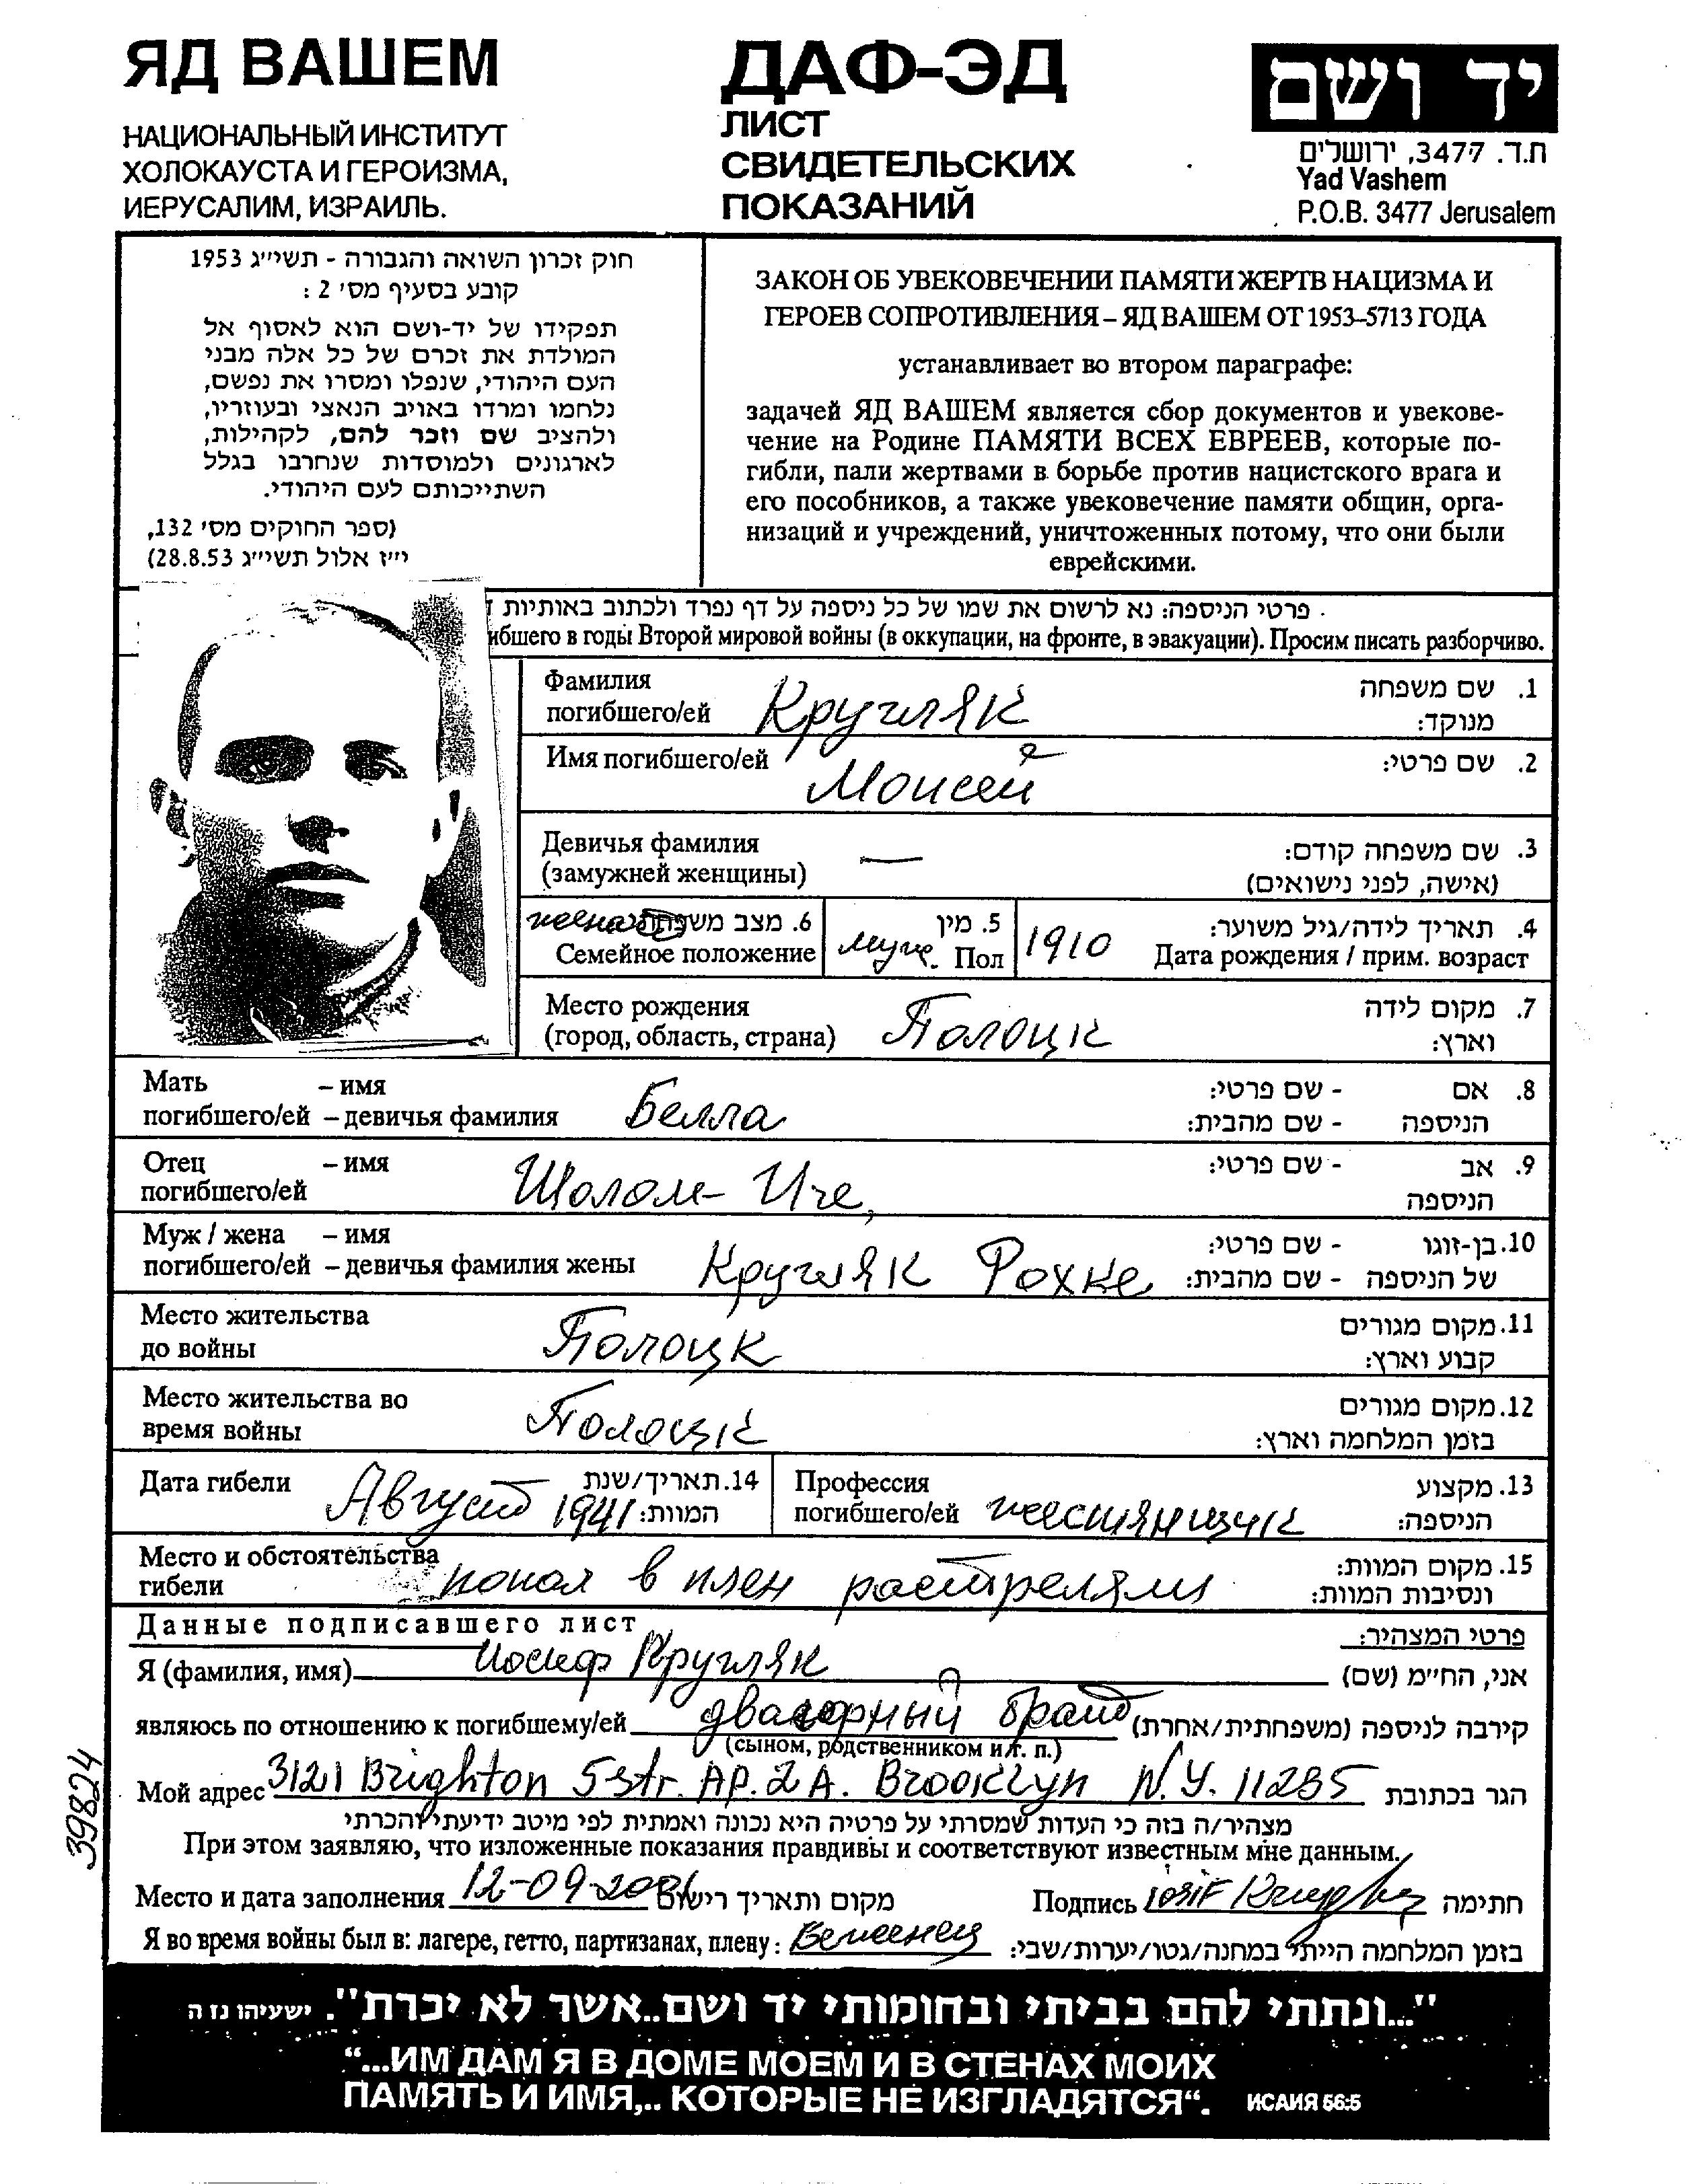 ЯД ВАШЕМ
НАЦИОНАЛЬНЫЙ ИНСТИТУТ
ХОЛОКАУСТА И ГЕРОИЗМА,
ИЕРУСАЛИМ, ИЗРАИЛЬ.
ДАФ-ЭД
ЛИСТ
СВИДЕТЕЛЬСКИХ
ПОКАЗАНИЙ
יד ושם
ת.ד. 3477, ירושלים
Yad Vashem
P.O.B. 3477 Jerusalem
חוק זכרון השואה והגבורה - תשי״ג 1953
קובע בסעיף מס׳ 2 :
תפקידו של יד-ושם הוא לאסוף אל
המולדת את זכרם של כל אלה מבני
העם היהודי, שנפלו ומסרו את נפשם,
נלחמו ומרדו באויב הנאצי ובעוזריו,
ולהציב שם וזכר להם, לקהילות,
לארגונים ולמוסדות שנחרבו בגלל
השתייכותם לעם היהודי.
(ספר החוקים מס׳ 132,
י״ז אלול תשי״ג 28.8.53)
ЗАКОН ОБ УВЕКОВЕЧЕНИИ ПАМЯТИ ЖЕРТВ НАЦИЗМА И
ГЕРОЕВ СОПРОТИВЛЕНИЯ – ЯД ВАШЕМ ОТ 1953–5713 ГОДА
устанавливает во втором параграфе:
задачей ЯД ВАШЕМ является сбор документов и увекове-
чение на Родине ПАМЯТИ ВСЕХ ЕВРЕЕВ, которые по-
гибли, пали жертвами в борьбе против нацистского врага и
его пособников, а также увековечение памяти общин, орга-
низаций и учреждений, уничтоженных потому, что они были
еврейскими.
פרטי הניספה: נא לרשום את שמו של כל ניספה על דף נפרד ולכתוב באותיות
ибшего в годы Второй мировой войны (в оккупации, на фронте, в эвакуации). Просим писать разборчиво.
Фамилия Кругляк 1. שם משפחה
погибшего/ей מנוקד:
Имя погибшего/ей Моисей 2. שם פרטי:
Девичья фамилия — 3. שם משפחה קודם:
(замужней женщины) (אישה, לפני נישואים)
женат 6. מצב משפחתי 5. מין 4. תאריך לידה/גיל משוער:
Семейное положение муж. Пол 1910 Дата рождения / прим. возраст
Место рождения 7. מקום לידה
(город, область, страна) Полоцк וארץ:
Мать – имя 8. אם - שם פרטי:
погибшего/ей – девичья фамилия Белла הניספה - שם מהבית:
Отец – имя 9. אב - שם פרטי:
погибшего/ей Шолом-Иче, הניספה
Муж / жена – имя 10. בן-זוגו - שם פרטי:
погибшего/ей – девичья фамилия жены Кругляк Рохке של הניספה - שם מהבית:
Место жительства 11. מקום מגורים
до войны Полоцк קבוע וארץ:
Место жительства во 12. מקום מגורים
время войны Полоцк בזמן המלחמה וארץ:
Дата гибели Август 1941 14. תאריך/שנת
המוות:
Профессия 13. מקצוע
погибшего/ей жестянщик הניספה:
Место и обстоятельства 15. מקום המוות:
гибели попал в плен растреляли ונסיבות המוות:
Данные подписавшего лист פרטי המצהיר:
Я (фамилия, имя) Иосиф Кругляк אני, הח״מ (שם)
являюсь по отношению к погибшему/ей двоюрный брат קירבה לניספה (משפחתית/אחרת)
(сыном, родственником и т. п.)
Мой адрес 3121 Brighton 5 str. AP. 2 A. Brooklyn N.Y. 11235 הגר בכתובת
מצהיר/ה בזה כי העדות שמסרתי על פרטיה היא נכונה ואמתית לפי מיטב ידיעתי והכרתי
При этом заявляю, что изложенные показания правдивы и соответствуют известным мне данным.
Место и дата заполнения 12-09-2001 מקום ותאריך רישום Подпись Iosif חתימה
Я во время войны был в: лагере, гетто, партизанах, плену: Беженец בזמן המלחמה הייתי במחנה/גטו/יערות/שבי:
39824
"...ונתתי להם בביתי ובחומותי יד ושם..אשר לא יכרת". ישעיהו נז ה
“...ИМ ДАМ Я В ДОМЕ МОЕМ И В СТЕНАХ МОИХ
ПАМЯТЬ И ИМЯ,.. КОТОРЫЕ НЕ ИЗГЛАДЯТСЯ“. ИСАИЯ 56:5